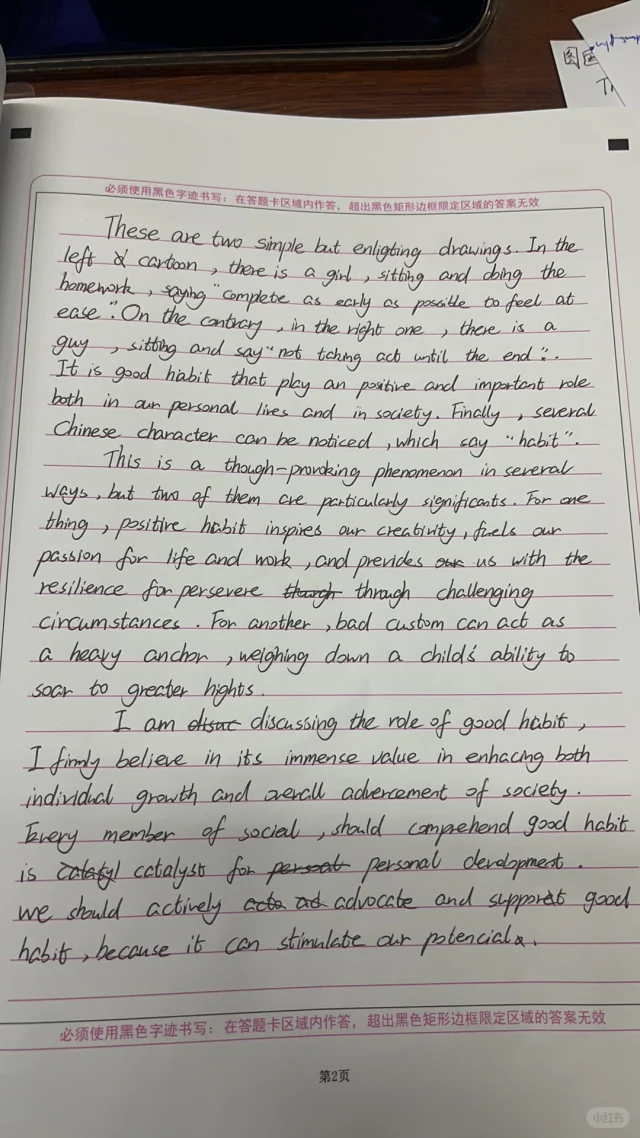 图
必须使用黑色字迹书写：在答题卡区域内作答，超出黑色矩形边框限定区域的答案无效
These are two simple but enligting drawings. In the
left cartoon, there is a girl, sitting and doing the
homework, saying "complete as early as possible to feel at
ease". On the contrary, in the right one, there is a
guy, sitting and say "not tching act until the end".
It is good habit that play an positive and important role
both in our personal lives and in society. Finally, several
Chinese character can be noticed, which say "habit".
This is a though-provoking phenomenon in several
ways, but two of them are particularly significants. For one
thing, positive habit inspires our creativity, fuels our
passion for life and work, and previdess us with the
resilience for persevere through challenging
circumstances. For another, bad custom can act as
a heavy anchor, weighing down a child's ability to
soar to greater hights.
I am discussing the role of good habit,
I firmly believe in its immense value in enhacing both
individual growth and overall advercement of society.
Every member of social, should comprehend good habit
is catalyst for personal development.
we should actively advocate and support good
habit, because it can stimulate our potencial.
必须使用黑色字迹书写：在答题卡区域内作答，超出黑色矩形边框限定区域的答案无效
第2页
小红书